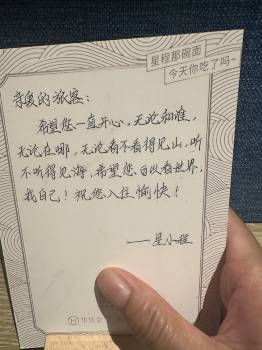 星程那碗面
今天你吃了吗~
亲爱的旅客:
希望您一直开心,无论和谁,
无论在哪,无论看不看得见山,听
不听得见海,希望您可以看世界,
找自己!祝您入住愉快!
——星小程
H 华住会